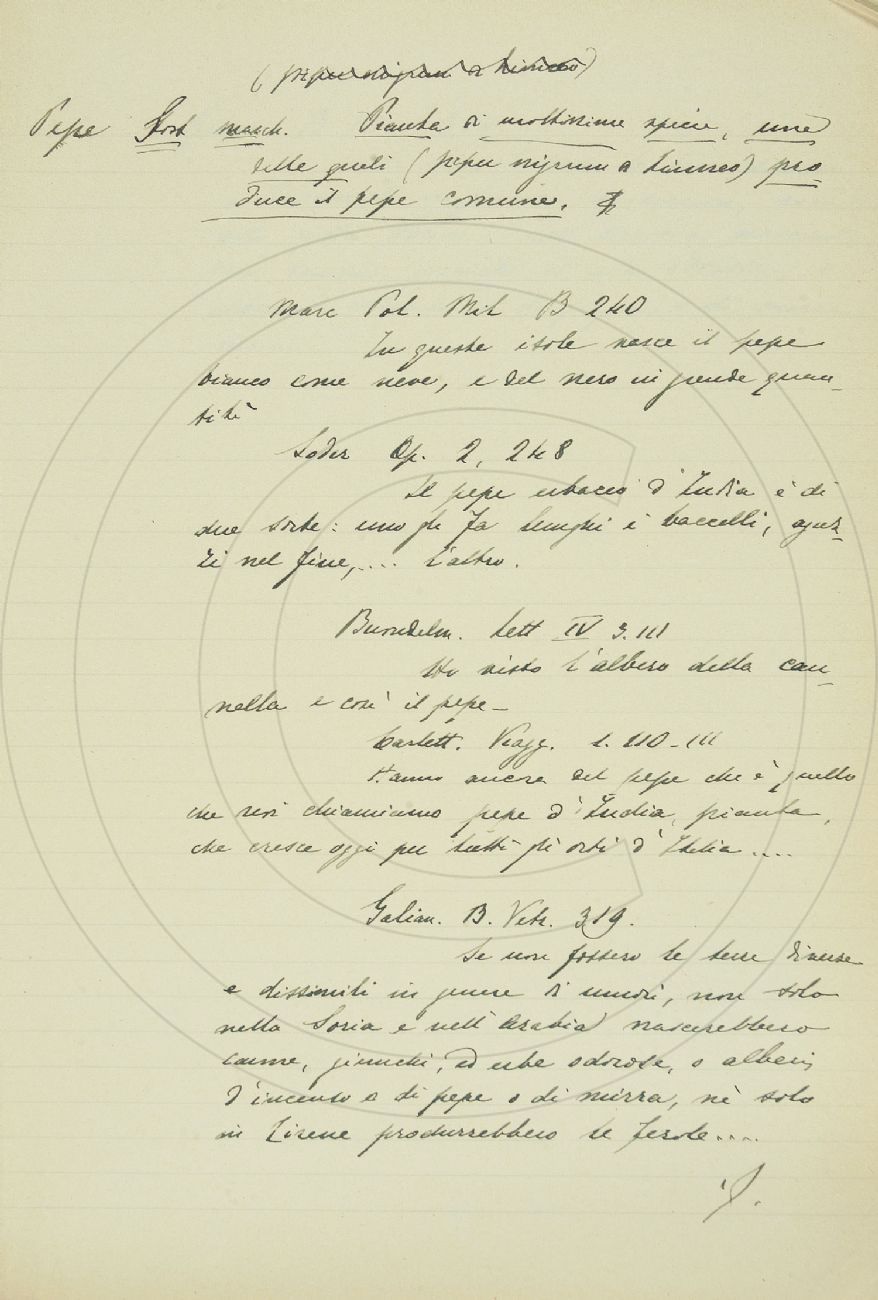 (piper nigrum a Linneo)
Pepe Sost masch. Pianta di moltissime specie, una
delle quali (piper nigrum a Linneo) pro
duce il pepe comune.
Marc Pol. Mil B 240
In queste isole nasce il pepe
bianco come neve, e del nero in grande quan-
tità
Soder Op. 2, 248
Il pepe erbaceo d'India è di
due sorte: uno fa lunghi i baccelli, aguz-
zi nel fine,.... l'altro.
Buondelm. Lett IV 3. 111
Ho visto l'albero della can-
nella e così il pepe-
Carlett. Viagg. 1. 110-111
Hanno ancora del pepe che è quello
che noi chiamiamo pepe d'India, pianta,
che cresce oggi per tutti gli orti d'Italia....
Galian. B. Vetr. 319.
Se non fossero le terre diverse
e dissimili in genere di umori, non solo
nella Soria e nell'Arabia nascerebbero
canne, giunchi, ed erbe odorose, o alberi
d'incenso e di pepe o di mirra, nè solo
in Cirene produrrebbero le ferole....